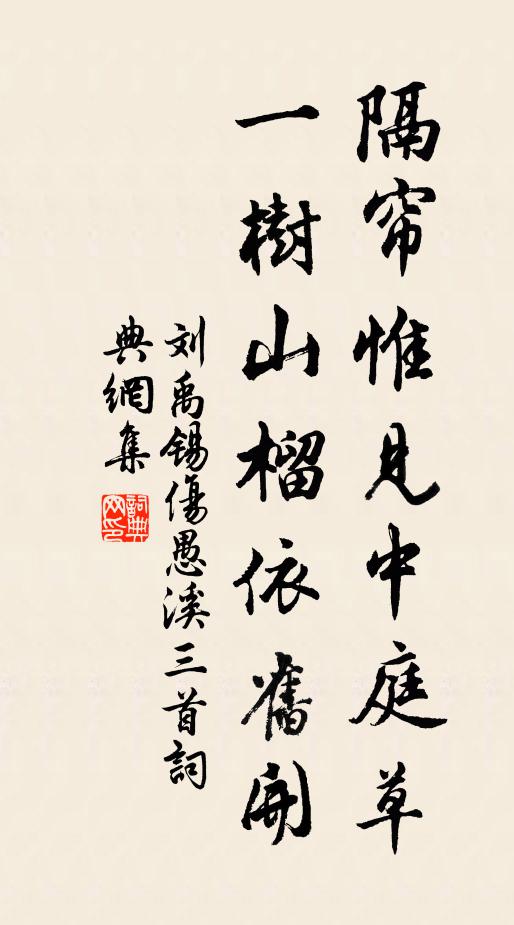 隔帘惟見中庭草
一樹山榴依舊開
刘禹锡傷愚溪三首詞
典網集
詞典網印